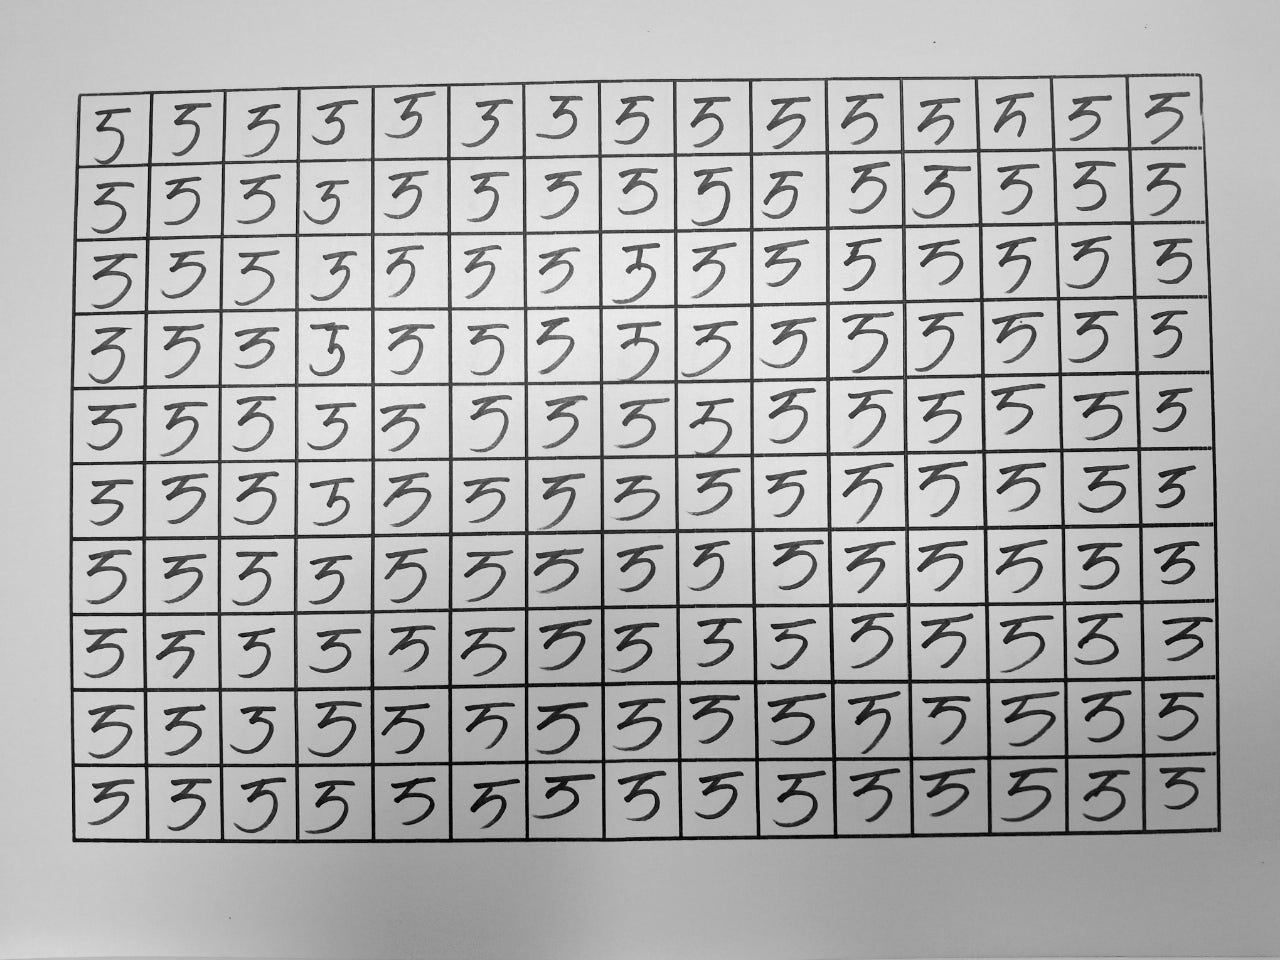 5 5 5 5 5 5 5 5 5 5 5 5 5 5 5
5 5 5 5 5 5 5 5 5 5 5 5 5 5 5
5 5 5 5 5 5 5 5 5 5 5 5 5 5 5
5 5 5 5 5 5 5 5 5 5 5 5 5 5 5
5 5 5 5 5 5 5 5 5 5 5 5 5 5 5
5 5 5 5 5 5 5 5 5 5 5 5 5 5 5
5 5 5 5 5 5 5 5 5 5 5 5 5 5 5
5 5 5 5 5 5 5 5 5 5 5 5 5 5 5
5 5 5 5 5 5 5 5 5 5 5 5 5 5 5
5 5 5 5 5 5 5 5 5 5 5 5 5 5 5